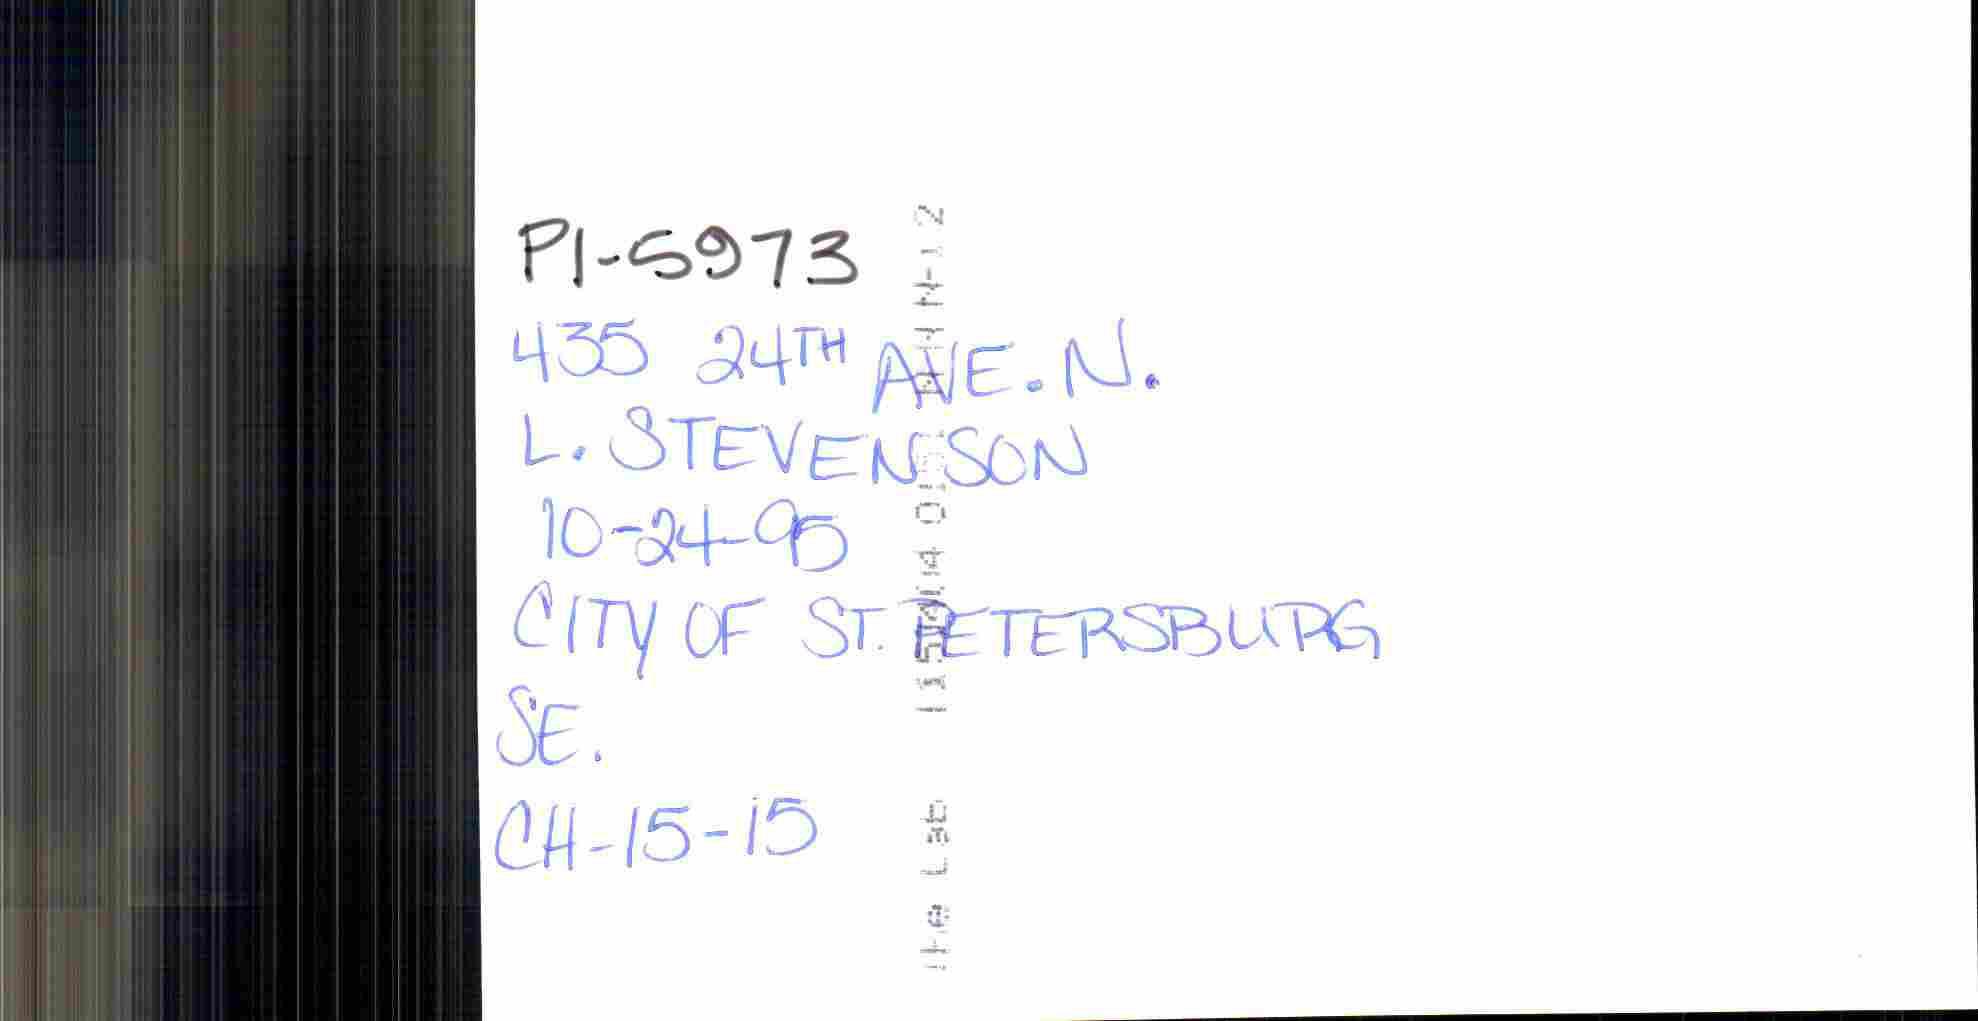 PI-5973
435 24TH AVE. N.
L. STEVENSON
10-24-95
CITY OF ST. PETERSBURG
SE.
CH-15-15